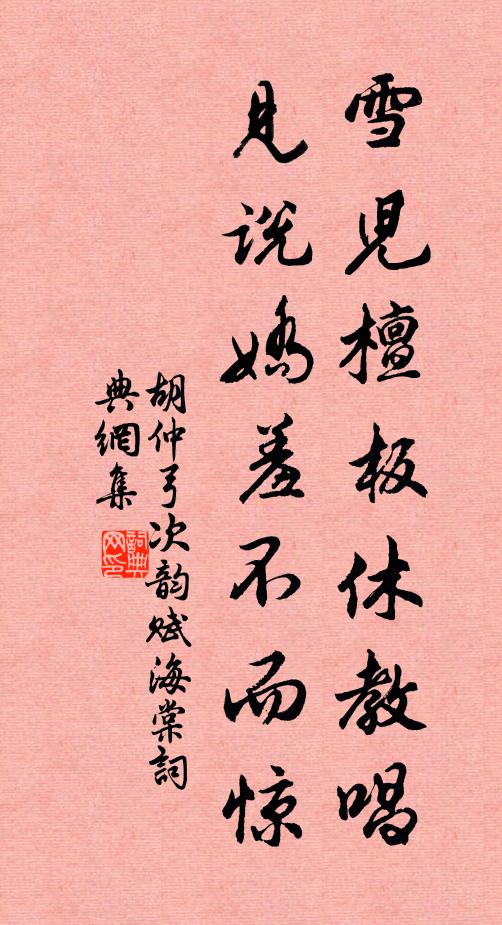 雪児檀板休教唱
見説嬌羞不而惊
胡仲弓次韵赋海棠詞
典網集
詞典网印